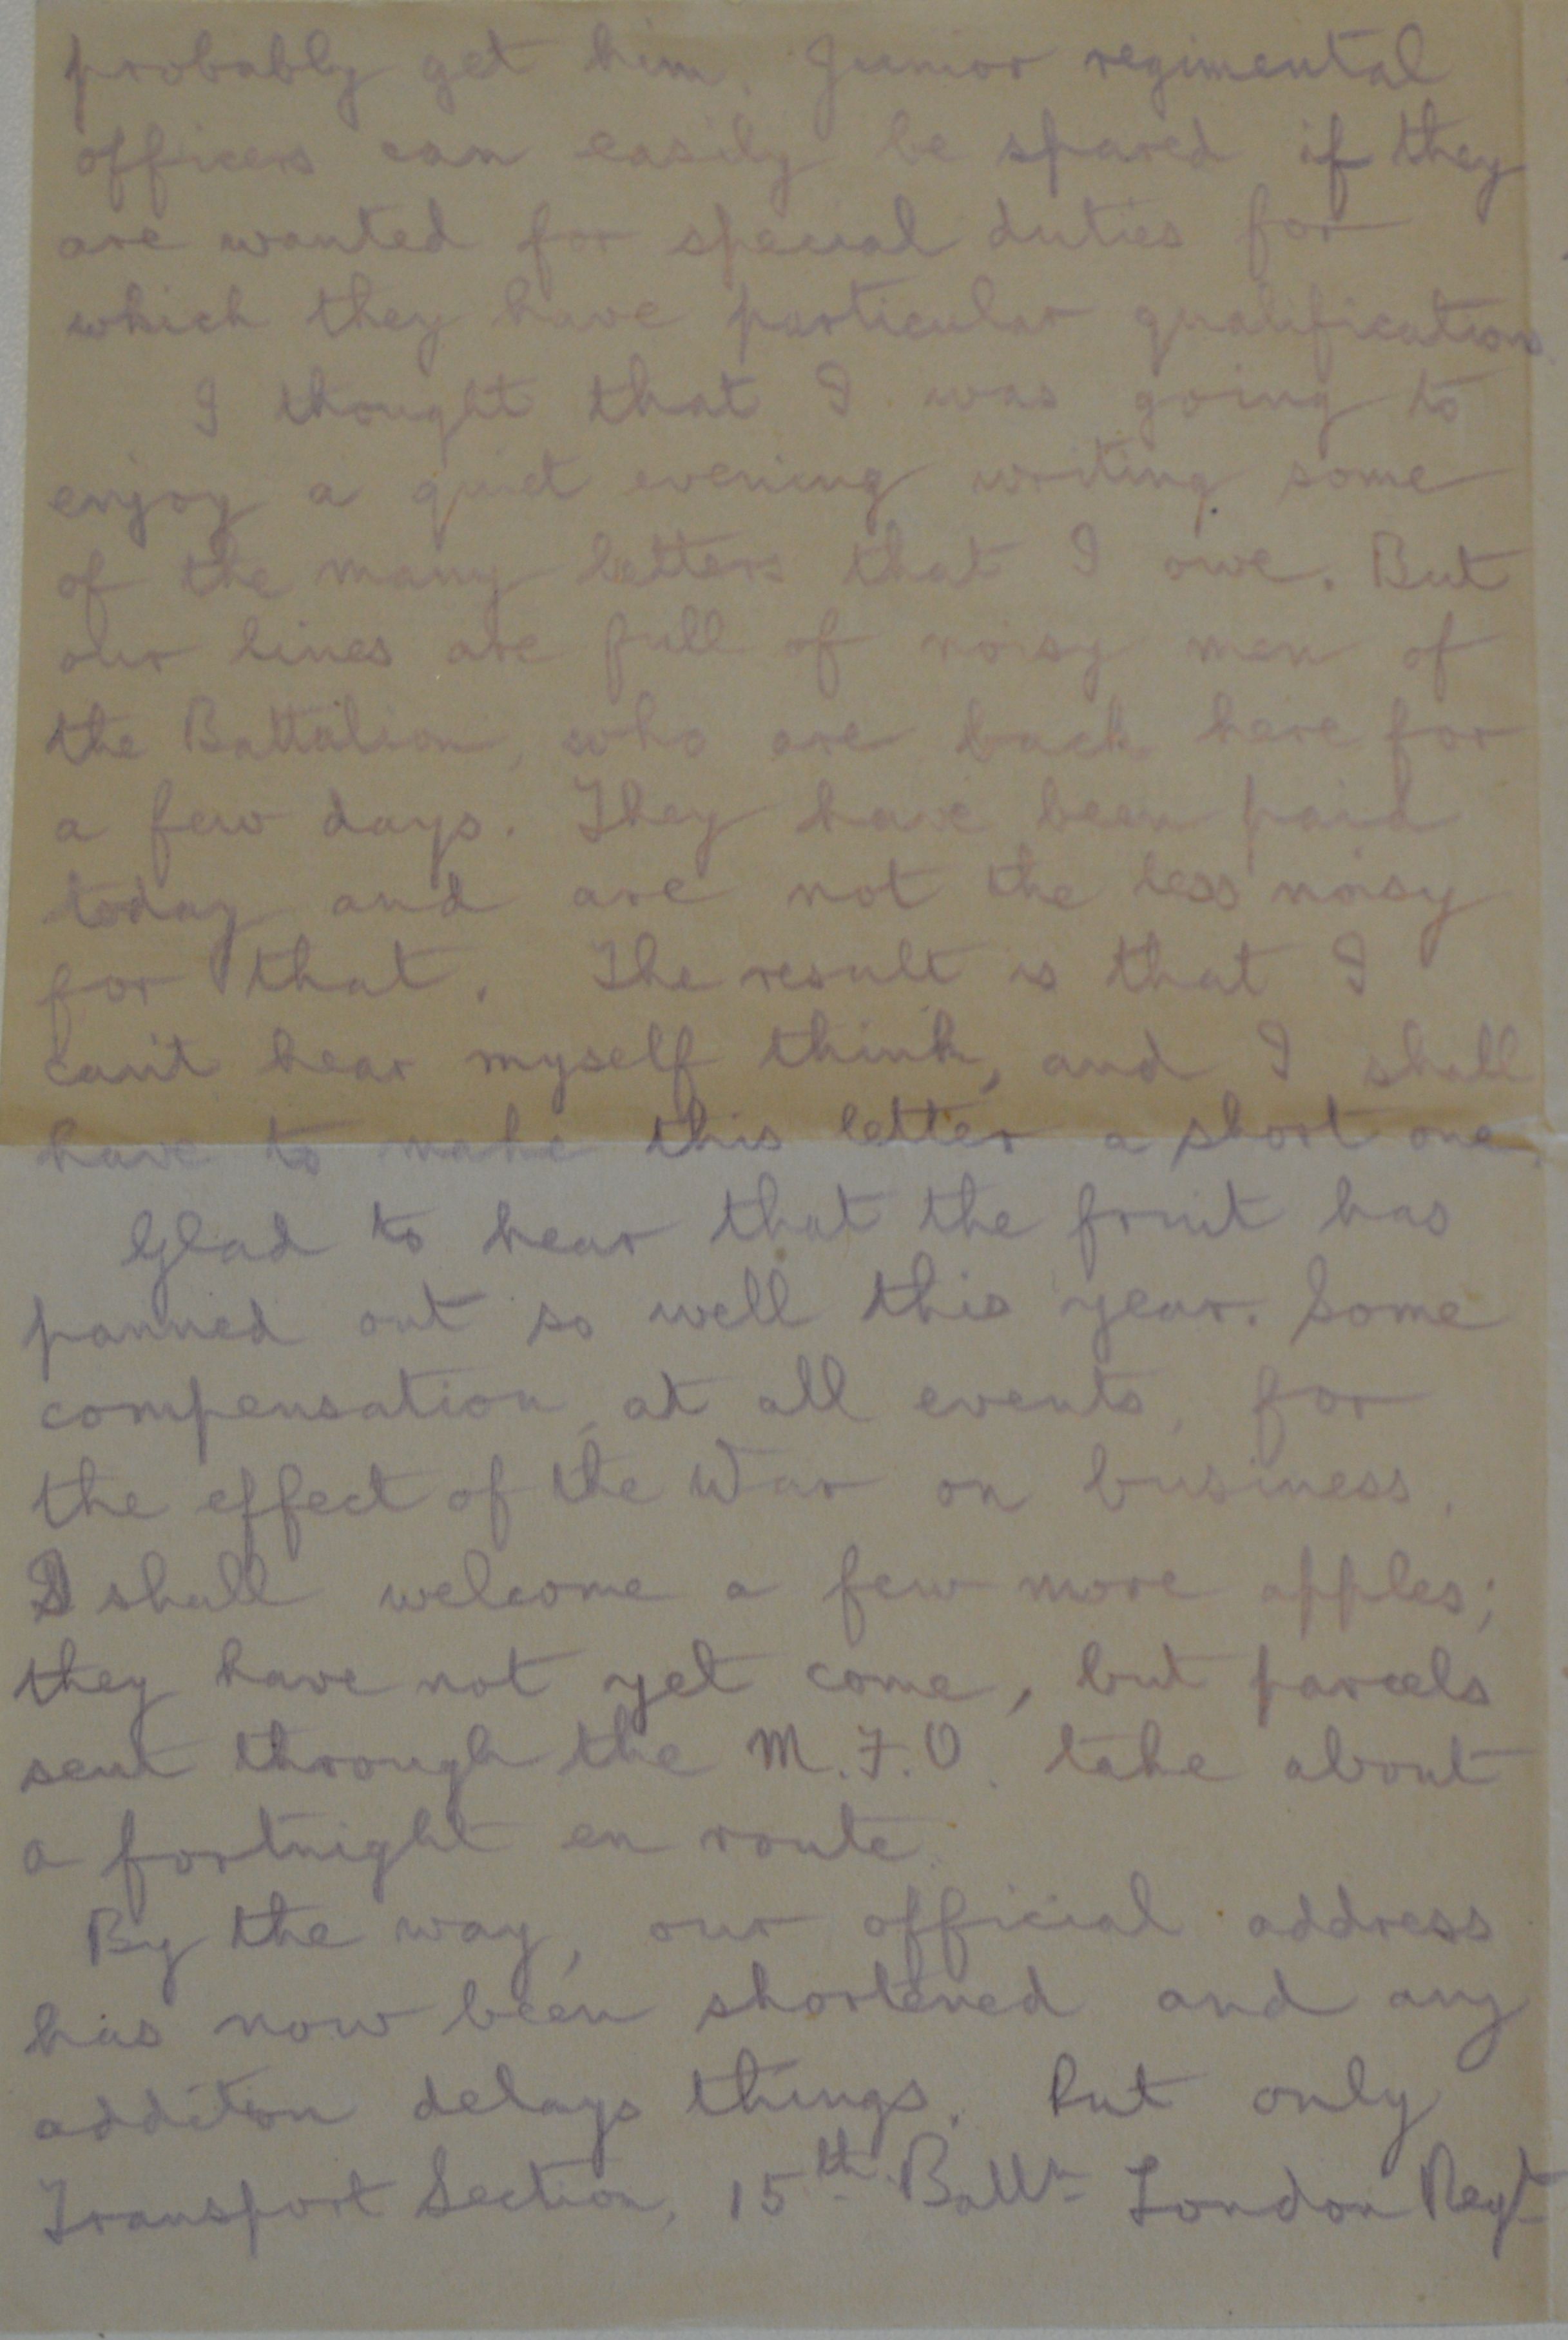 probably get him. Junior regimental
officers can easily be spared if they
are wanted for special duties for
which they have particular qualifications.
I thought that I was going to
enjoy a quiet evening writing some
of the many letters that I owe. But
our lines are full of noisy men of
the Battalion, who are back here for
a few days. They have been paid
today and are not the less noisy
for that. The result is that I
can't hear myself think, and I shall
have to make this letter a short one.
Glad to hear that the fruit has
panned out so well this year. Some
compensation, at all events, for
the effect of the War on business.
I shall welcome a few more apples;
they have not yet come, but parcels
sent through the M.F.O. take about
a fortnight en route.
By the way, our official address
has now been shortened and any
addition delays things. Put only
Transport Section, 15th Battn London Regt